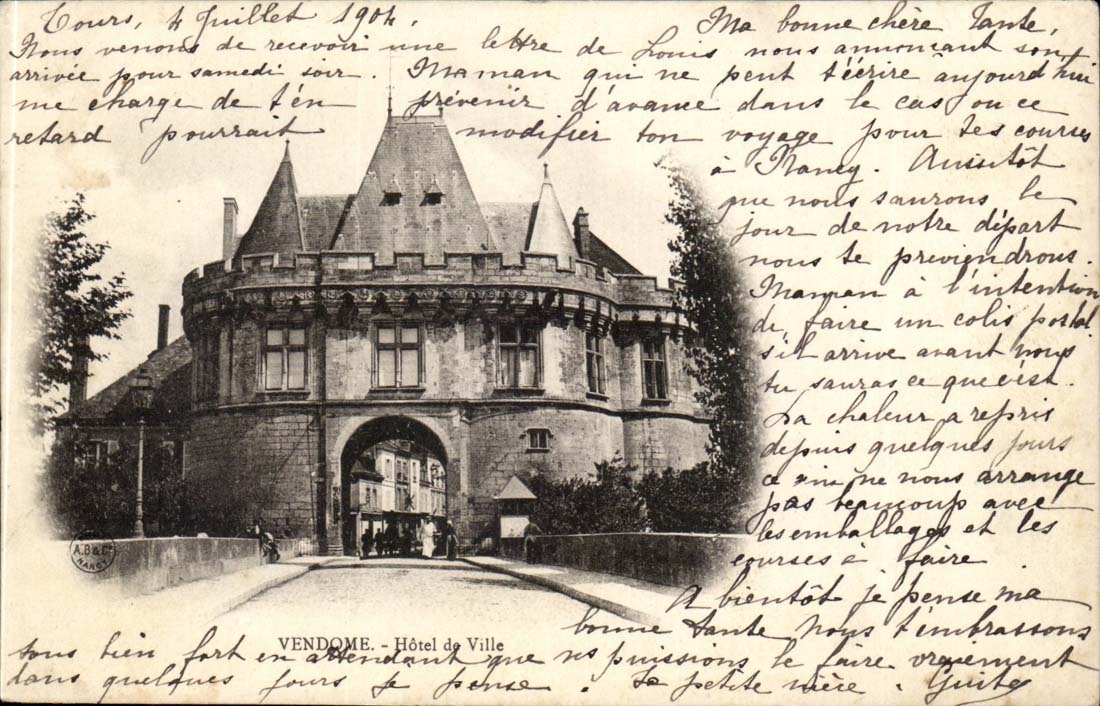 Tours, 4 Juillet 1904. Ma bonne chère Tante,
Nous venons de recevoir une lettre de Louis nous annoncant son
arrivée pour samedi soir. Maman qui ne peut t'écrire aujourd'hui
me charge de t'en prévenir d'avance dans le cas ou ce
retard pourrait modifier ton voyage pour tes courses
à Nancy. Aussitôt
que nous saurons le
jour de notre départ
nous te previendrons.
Maman à l'intention
de faire un colis postal
s'il arrive avant nous
tu sauras ce que c'est.
La chaleur a repris
depuis quelques jours
ce qui ne nous arrange
pas beaucoup avec
les emballages et les
courses à faire
A bientôt je pense ma
bonne tante nous t'embrassons
tous bien fort en attendant que ns puissions le faire vraiement
dans quelques jours je pense. Ta petite nièce. Guite
A.B & Cie
NANCY
VENDOME. - Hôtel de Ville